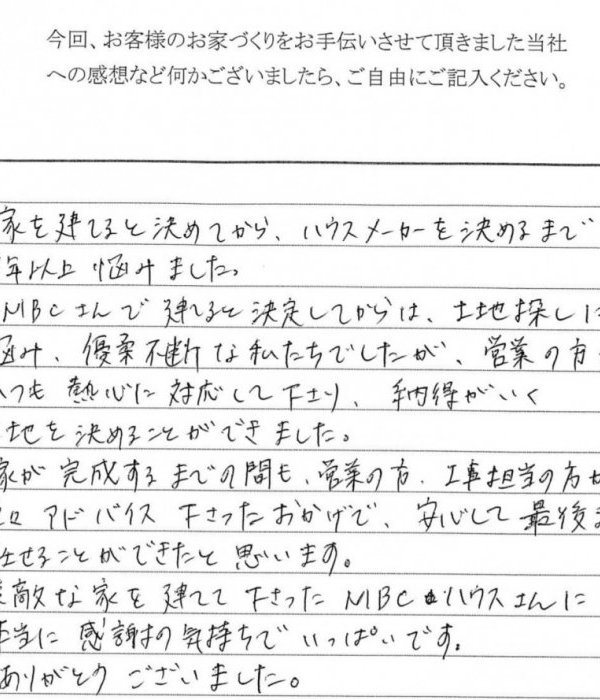 今回、お客様のお家づくりをお手伝いさせて頂きました当社
への感想など何かございましたら、ご自由にご記入ください。
家を建てると決めてから、ハウスメーカーを決めるまで
年以上 悩みました。
MBCさんで 建てると決定してからは、土地探しに
悩み、優柔不断な私たちでしたが、営業の方
いつも 熱心に 対応して下さり、納得がいく
土地を決めることができました。
家が 完成するまでの間も、営業の方、工事担当の方が
アドバイス 下さったおかげで、安心して 最後ま
任せることができたと 思います。
素敵な家を 建てて 下さった MBCハウスさんに
本当に 感謝の気持ちで いっぱいです。
ありがとうございました。